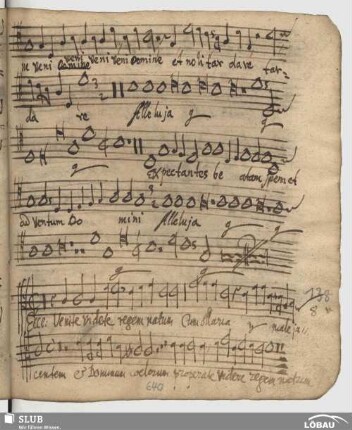 ne veni Domine veni veni veni Domine et noli tardare tar=
da re Alleluja
Expectantes beatam spem et
adventum Do mini Alleluja
138
8
Ecce. Venite videte regem natum Cum Maria
centem et Dominum coelorum properate videre regem natum
640
SLUB
Wir führen Wissen.
LÖBAU